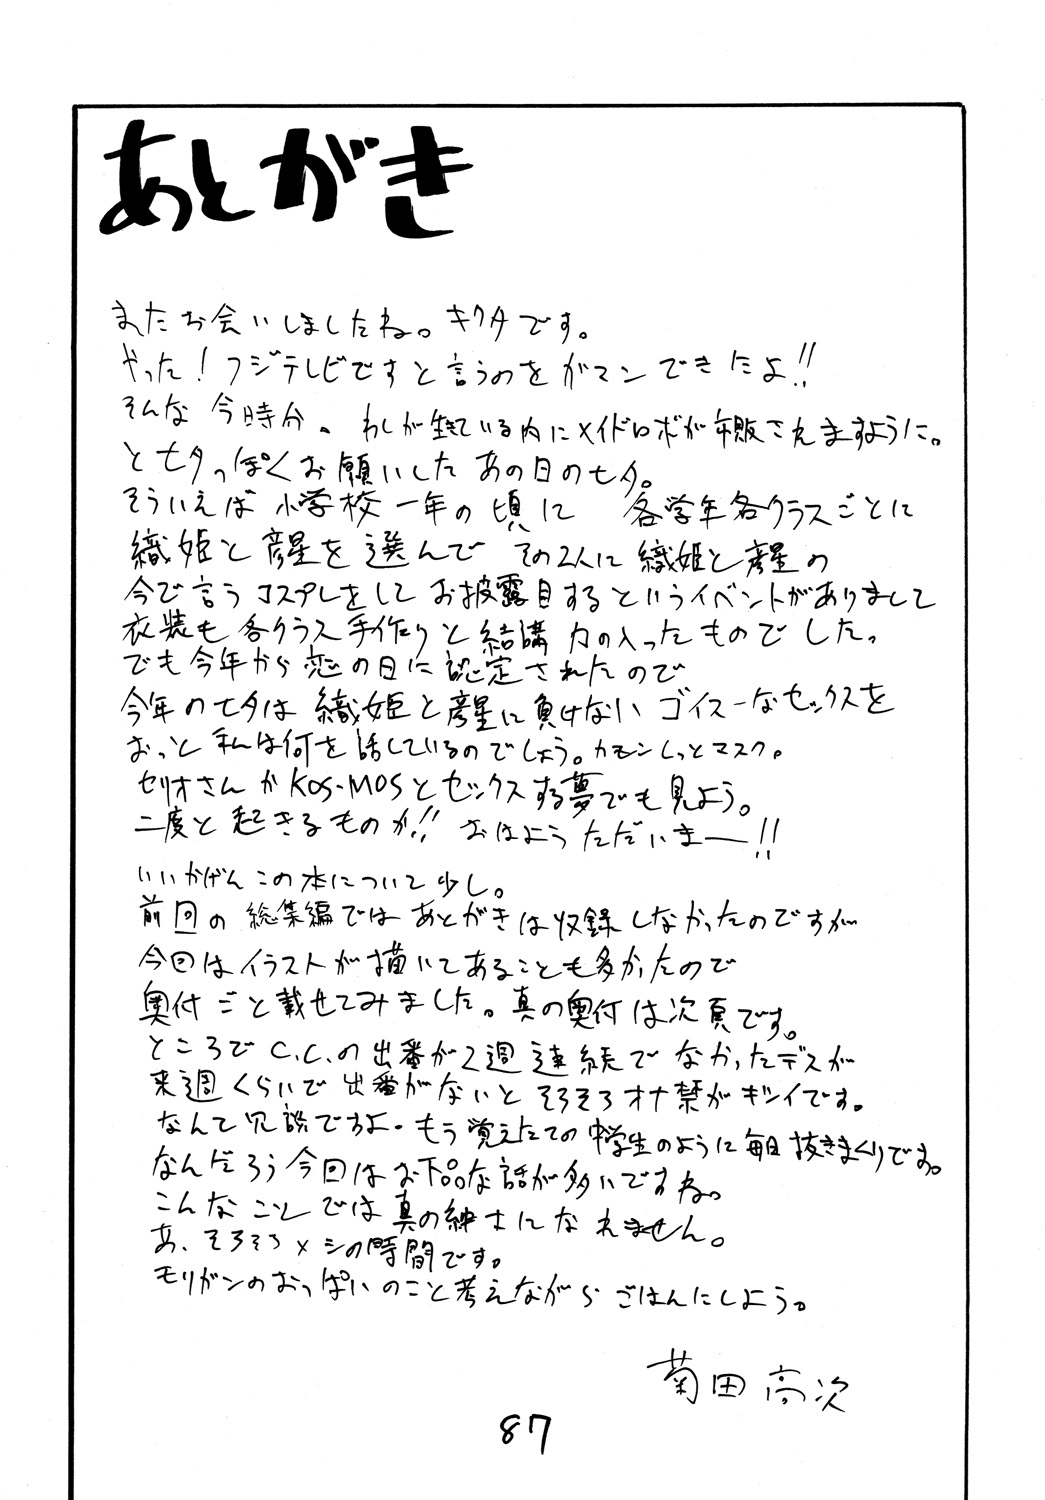 あとがき
またお会いしましたね。キクタです。
やった!フジテレビですと言うのをガマンできたよ!!
そんな今時分。わしが生きている内にメイドロボが市販されますように。
と七夕っぽくお願いしたあの日の七夕。
そういえば小学校一年の頃に 各学年各クラスごとに
織姫と彦星を選んで その2人に織姫と彦星の
今で言うコスプレをしてお披露目するというイベントがありまして
衣装も各クラス手作りと結構力の入ったものでした。
でも今年から恋の日に認定されたので
今年の七夕は織姫と彦星に負けないゴイスーなセックスを
おっと私は何を話しているのでしょう。カモンしっとマスク。
セリオさんかKOS-MOSとセックスする夢でも見よう。
二度と起きるものか!!おはようただいまー!!
いいかげんこの本について少し。
前回の総集編ではあとがきは収録しなかったのですが
今回はイラストが描いてあることも多かったので
奥付ごと載せてみました。真の奥付は次頁です。
ところでC.C.の出番が2週連続でなかったデスが
来週くらいで出番がないとそろそろオナ禁がギシイです。
なんて冗談ですよ。もう覚えたての中学生のように毎日抜きまくりです。
なんだろう今回はお下品な話が多いですね。
こんなことでは真の紳士になれません。
あ、そろそろメシの時間です。
モリガンのおっぱいのこと考えながらごはんにしよう。
菊田高次
87